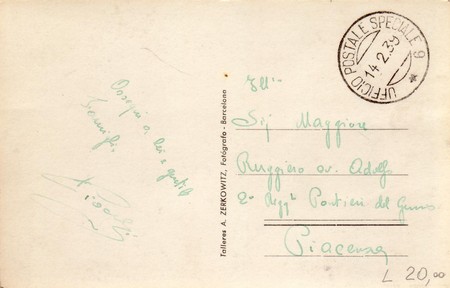 UFFICIO POSTALE SPECIALE 9
14.2.39
Ossequi a lei e gentil
famiglia
Talleres A. ZERKOWITZ, Fotógrafo - Barcelona
Ill.
Sig Maggiore
Ruggiero av. Adolfo
2º Regg Pontieri del Genio
Piacenza
L 20,00